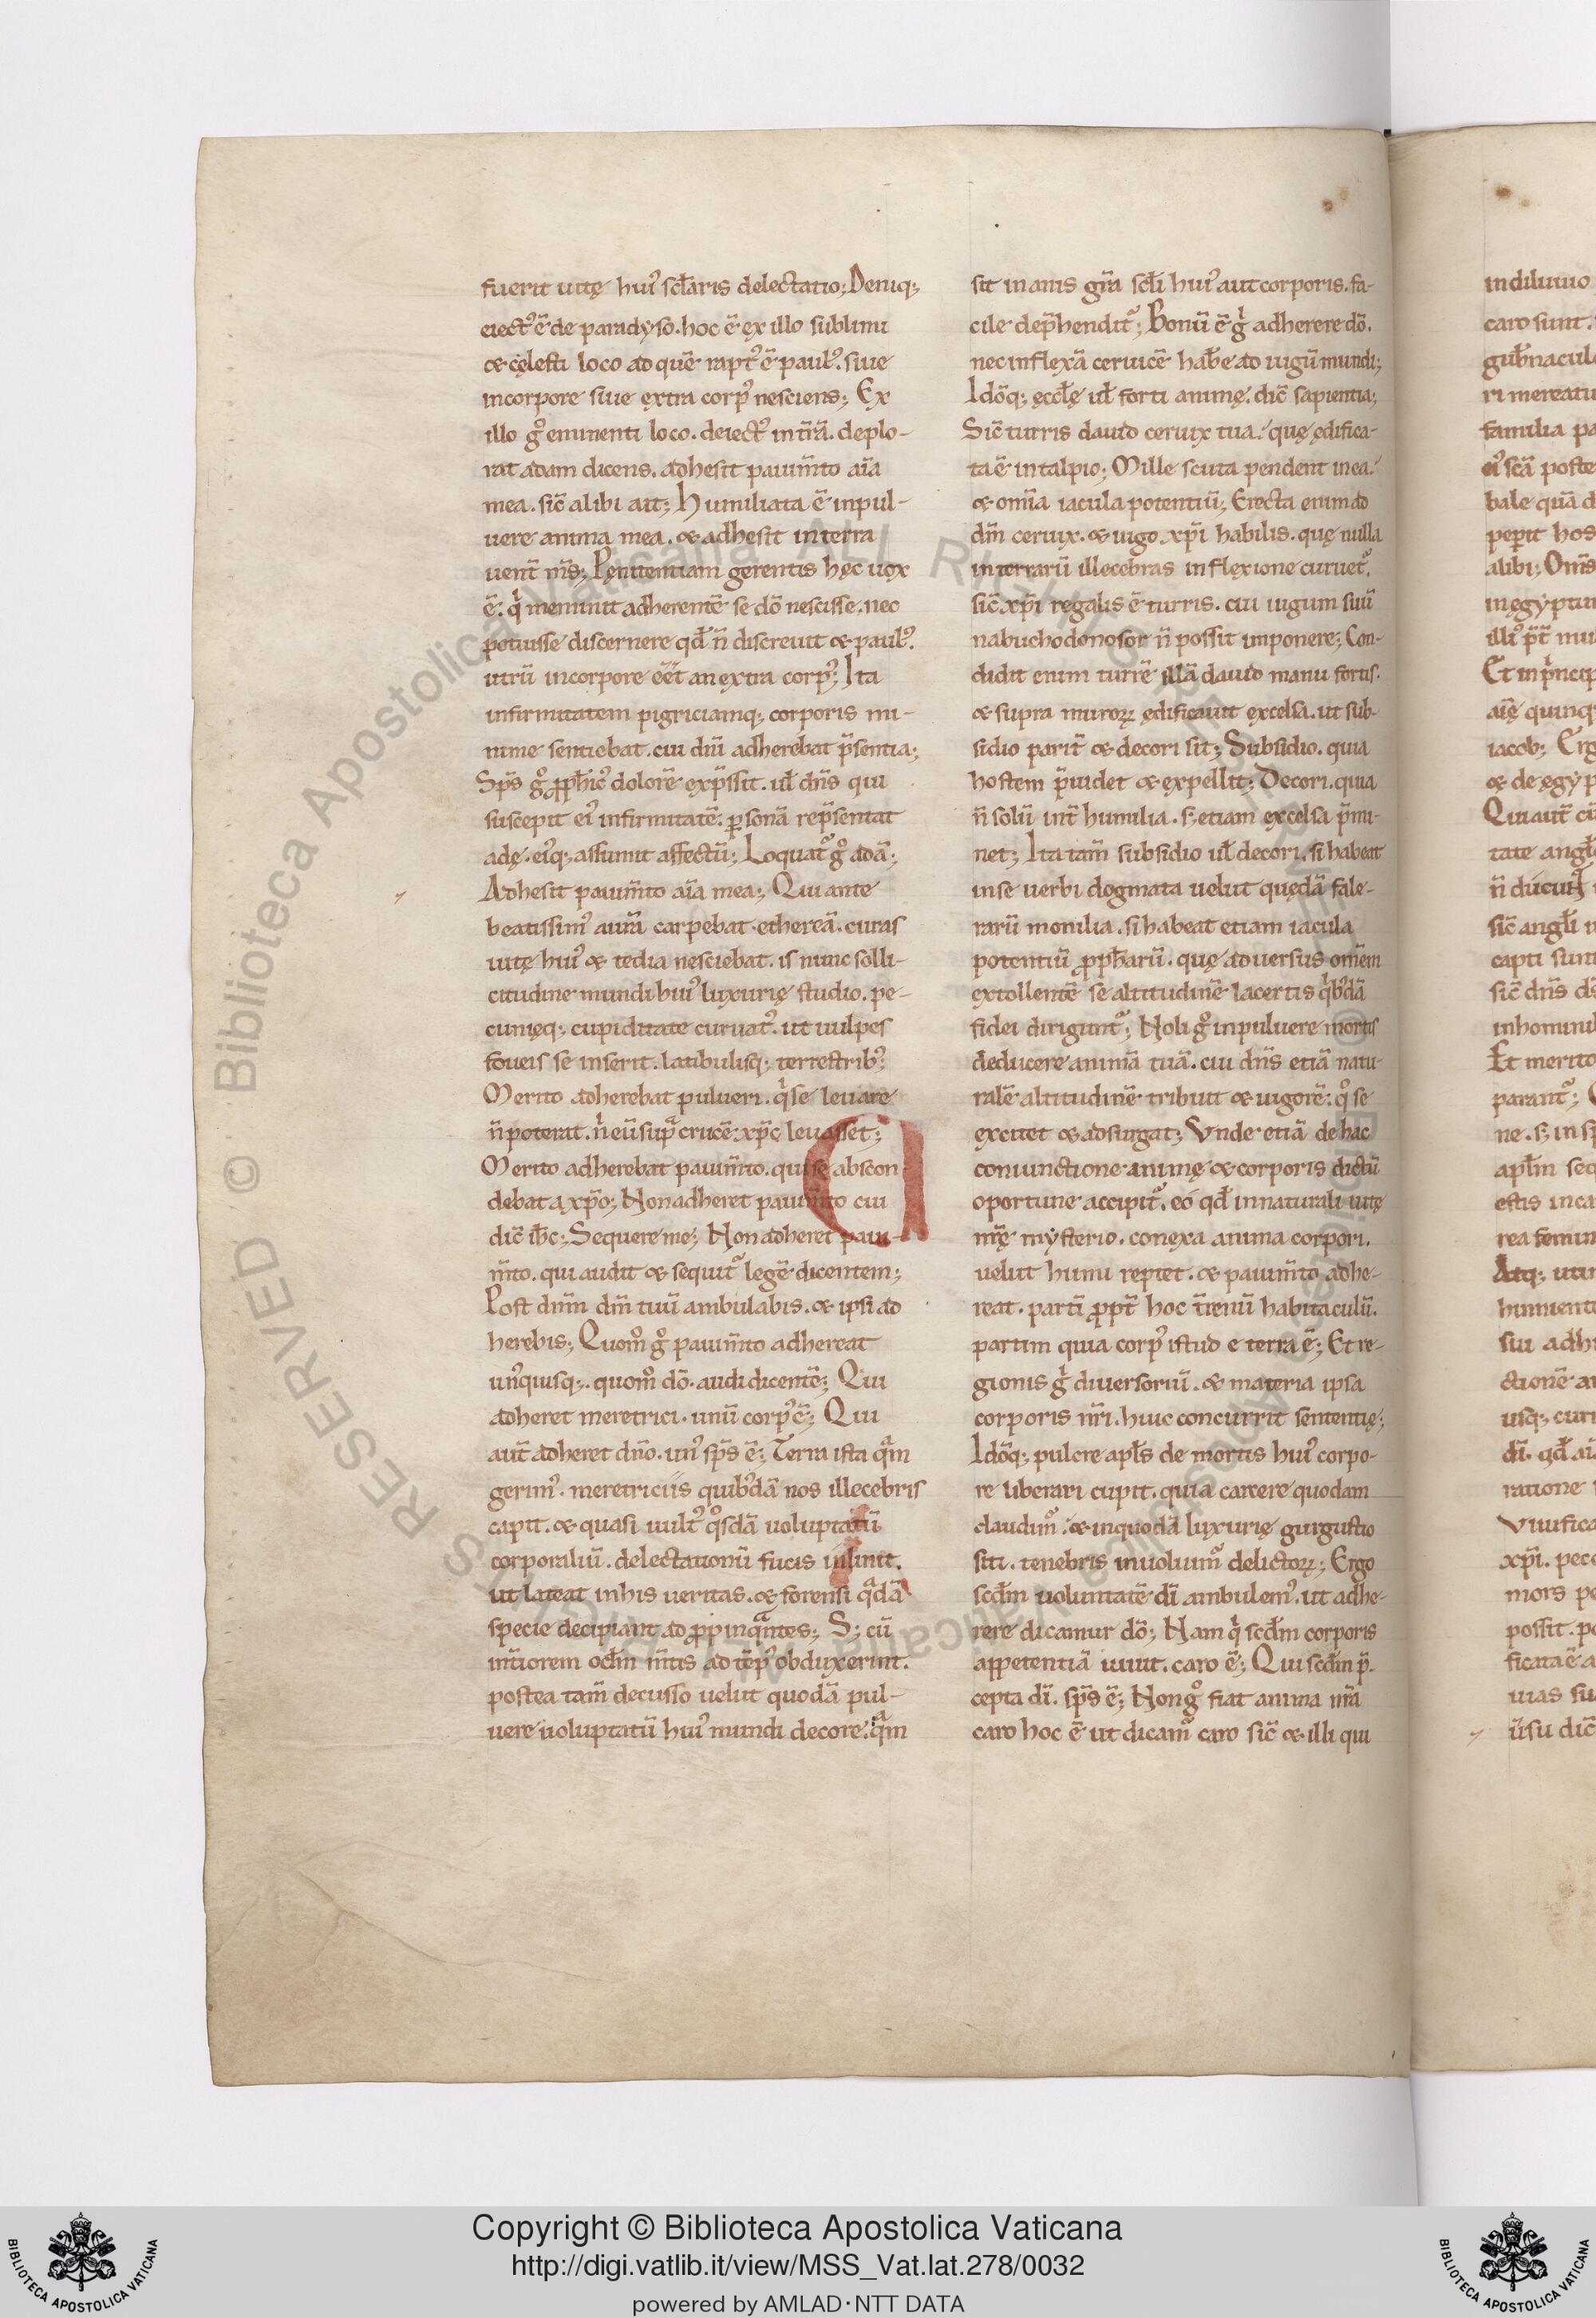 fuerit uitę hui᷒ scl̄aris delectatio; Deniq;
eiect᷒ ē de paradyso. hoc ē ex illo sublimi
& cęlesti loco ad quē rapt᷒ ē paul᷒. siue
incorpore siue extra corp᷒ nesciens; Ex
illo g̊ eminenti loco. deiect᷒ in t̄rā. deplo-
rat adam dicens. adhesit pauim̄to aīa
mea. sic̄ alibi ait; Humiliata ē inpul-
uere anima mea. & adhesit interra
uent̄ nr̄s; Pęnitentiam gerentis hęc uox
ē. qⁱ meminit adherentē se dō nescisse. nec
potuisse discernere qd̄ n̄ discreuit & paul᷒.
utrū incorpore eēt an extra corp᷒; Ita
infirmitatem pigriciamq; corporis mi-
nime sentiebat. cui dn̄i adherebat p̄sentia;
Sp̄s g̊ ꝓph̄ic᷒ dolorē exp̄ssit. ul̄ dn̄s qui
suscepit ei᷒ infirmitatē. ꝑsonā rep̄sentat
adę. ei᷒q; assumit affectū; Loquat᷑ g̊ adā;
Adhesit pauim̄to aīa mea; Qui ante
beatissim᷒ aurā carpebat ethereā. curas
uitę hui᷒ & tedia nesciebat. is nunc solli-
citudine mundi hui᷒ luxurię studio. pe-
cunięq; cupiditate curuat᷒. ut uulpes
foueis se inserit. latibulisq; terrestrib᷒;
Merito adherebat pulueri. qⁱ se leuare
n̄ poterat. nⁱ eū supᵃ crucē xp̄c leuasset;
Merito adherebat pauim̄to. qui se abscon-
debat a xp̄o; Non adheret pauim̄to cui
dic̄ ih̄c; Sequere me; Non adheret paui-
m̄to. qui audit & sequit᷑ legē dicentem;
Post dnm̄ dm̄ tuū ambulabis. & ipsi ad
herebis; Quom̊ g̊ pauim̄to adhereat
un᷒quisq;. quom̊ dō. audi dicentē; Qui
adheret meretrici. unū corp᷒ ē; Qui
aut̄ adheret dn̄o. un᷒ sp̄s ē; Terra ista qᵃm
gerim᷒. meretriciis quib᷒dā nos illecebris
capit. & quasi uult᷒ q̊sdā uoluptatū
corporaliū. delectationū fucis inlinit.
ut lateat inhis ueritas. & forensi qᵃdā
specie decipiant ad ꝓpinqᵃntes; S; cū
int̄iorem ocl̄m m̄tis ad tēp᷒ obduxerint.
postea tam̄ decusso uelut quodā pul-
uere uoluptatū hui᷒ mundi decore. qᵃm
sit inanis gr̄a scl̄i hui᷒ aut corporis. fa-
cile dep̄hendit᷑; Bonū ē gⁱ adherere dō.
nec inflexā ceruicē hab̄e ad iugū mundi;
Idōq; ęccl̄ę ul̄ forti animę. dic̄ sapientia;
Sic̄ turris dauid ceruix tua. quę ędifica-
ta ē intalpio; Mille scuta pendent inea.
& omīa iacula potentiū; Erecta enim ad
dm̄ ceruix. & iugo xp̄i habilis. quę nulla
interrarū illecebras inflexione curuet᷑.
sic̄ xp̄i regalis ē turris. cui iugum suū
nabuchodonosor n̄ possit imponere; Con-
didit enim turrē illā dauid manu fortis.
& supra muroꝝ ędificauit excelsa. ut sub-
sidio parit̄ & decori sit; Subsidio. quia
hostem p̄uidet & expellit; Decori. quia
n̄ solū int̄ humilia. s; etiam excelsa p̄mi-
net; Ita tam̄ subsidio ul̄ decori. si habeat
inse uerbi dogmata uelut quędā fale-
rarū monilia. si habeat etiam iacula
potentiū ꝓph̄arū. quę aduersus omn̄em
extollentē se altitudinē lacertis qⁱb᷒dā
fidei dirigunt᷑; Noli g̊ inpuluere mortis
deducere animā tuā. cui dn̄s etiā natu-
ralē altitudinē tribuit & uigorē. q̊ se
excitet & adsurgat; Vnde etiā de hac
coniunctione animę & corporis dictū
oportune accipit᷑. eó qd̄ innaturali uitę
nr̄ę mysterio. conexa anima corpori.
uelut humi repiet. & pauim̄to adhe-
reat. partī ꝓpt̄ hoc t̄renū habitaculū.
partim quia corp᷒ istud e terra ē; Et re-
gionis gⁱ diuersoriū. & materia ipsa
corporis nr̄i. huic concurrit sententię;
Idōq; pulcre apl̄s de mortis hui᷒ corpo-
re liberari cupit. quia carcere quodam
claudim᷑. & inquodā luxurię gurgustio
siti. tenebris inuoluim᷑ delictoꝝ; Ergo
scd̄m uoluntatē dī ambulem᷒. ut adhe-
rere dicamur dō; Nam qⁱ scd̄m corporis
appetentiā uiuit. caro ē; Qui scd̄m p̄-
cepta dī. sp̄s ē; Non g̊ fiat anima nr̄a
caro hoc ē ut dicam᷑ caro sic̄ & illi qui
Copyright © Biblioteca Apostolica Vaticana
http://digi.vatlib.it/view/MSS_Vat.lat.278/0032
powered by AMLAD·NTT DATA